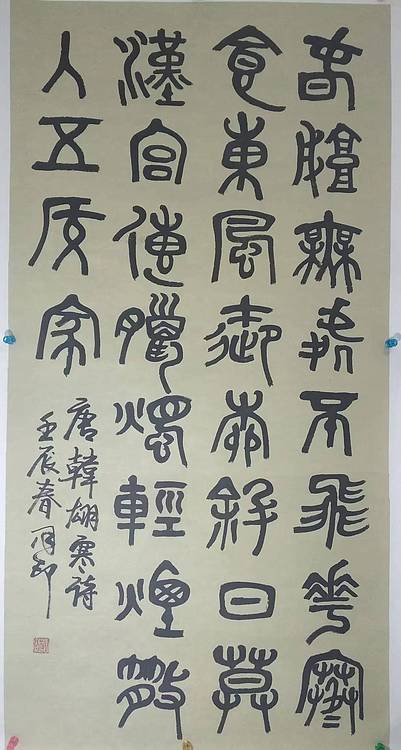 春城無處不飛花寒
食東風御柳斜日暮
漢宮傳蠟燭輕煙散
入五侯家
唐韓翃寒詩
壬辰春